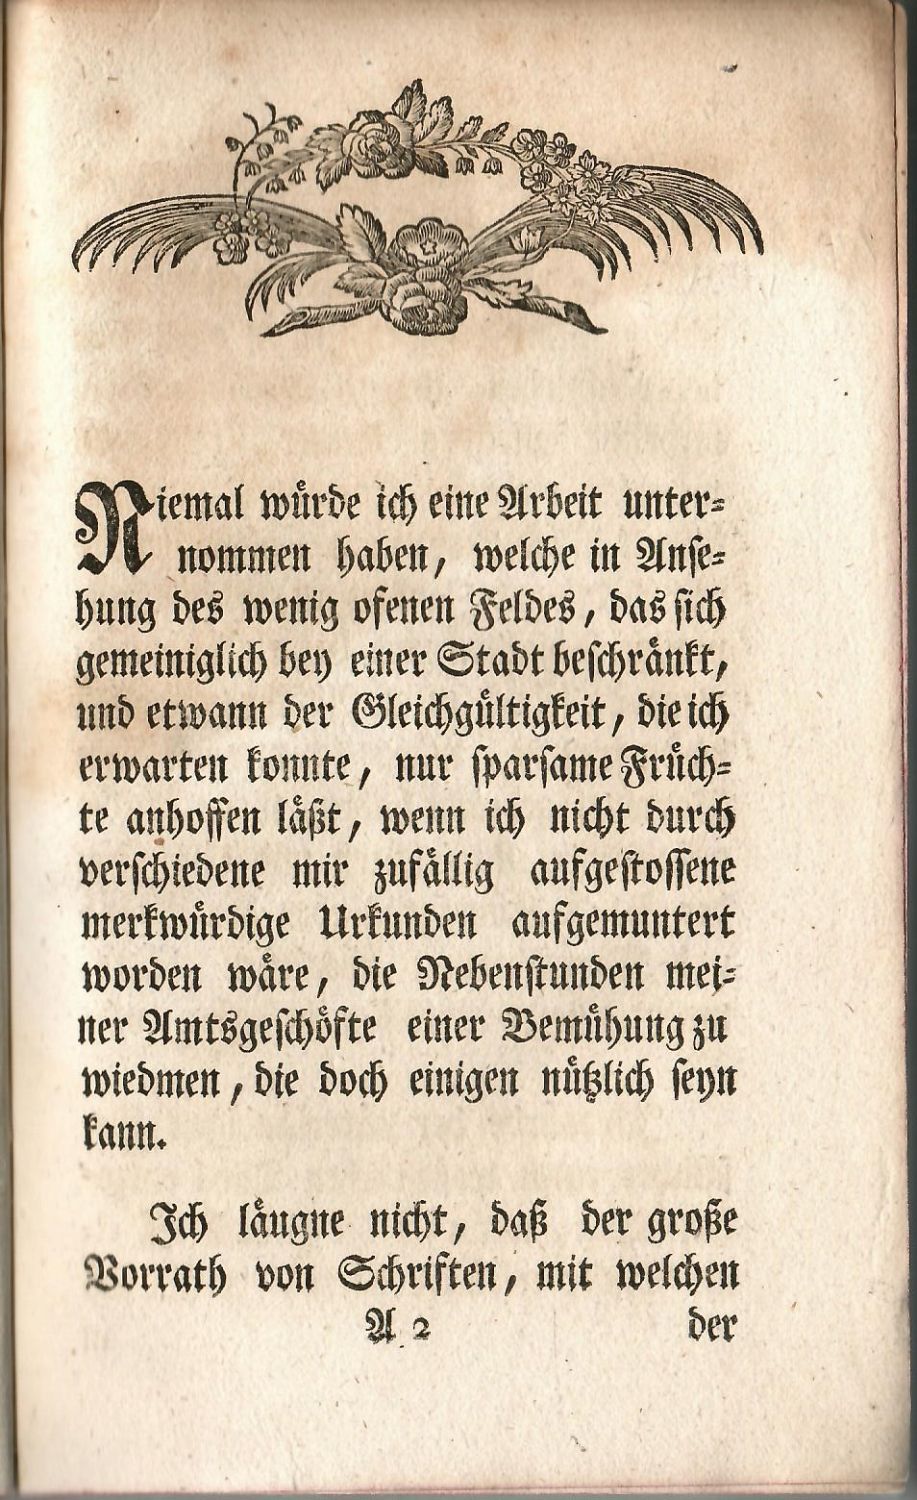 Niemal würde ich eine Arbeit unter-
nommen haben, welche in Anse-
hung des wenig ofenen Feldes, das sich
gemeiniglich bey einer Stadt beschränkt,
und etwann der Gleichgültigkeit, die ich
erwarten konnte, nur sparsame Früch-
te anhoffen läßt, wenn ich nicht durch
verschiedene mir zufällig aufgestossene
merkwürdige Urkunden aufgemuntert
worden wäre, die Nebenstunden mei-
ner Amtsgeschöfte einer Bemühung zu
wiedmen, die doch einigen nützlich seyn
kann.
Ich läugne nicht, daß der große
Vorrath von Schriften, mit welchen
A 2 der